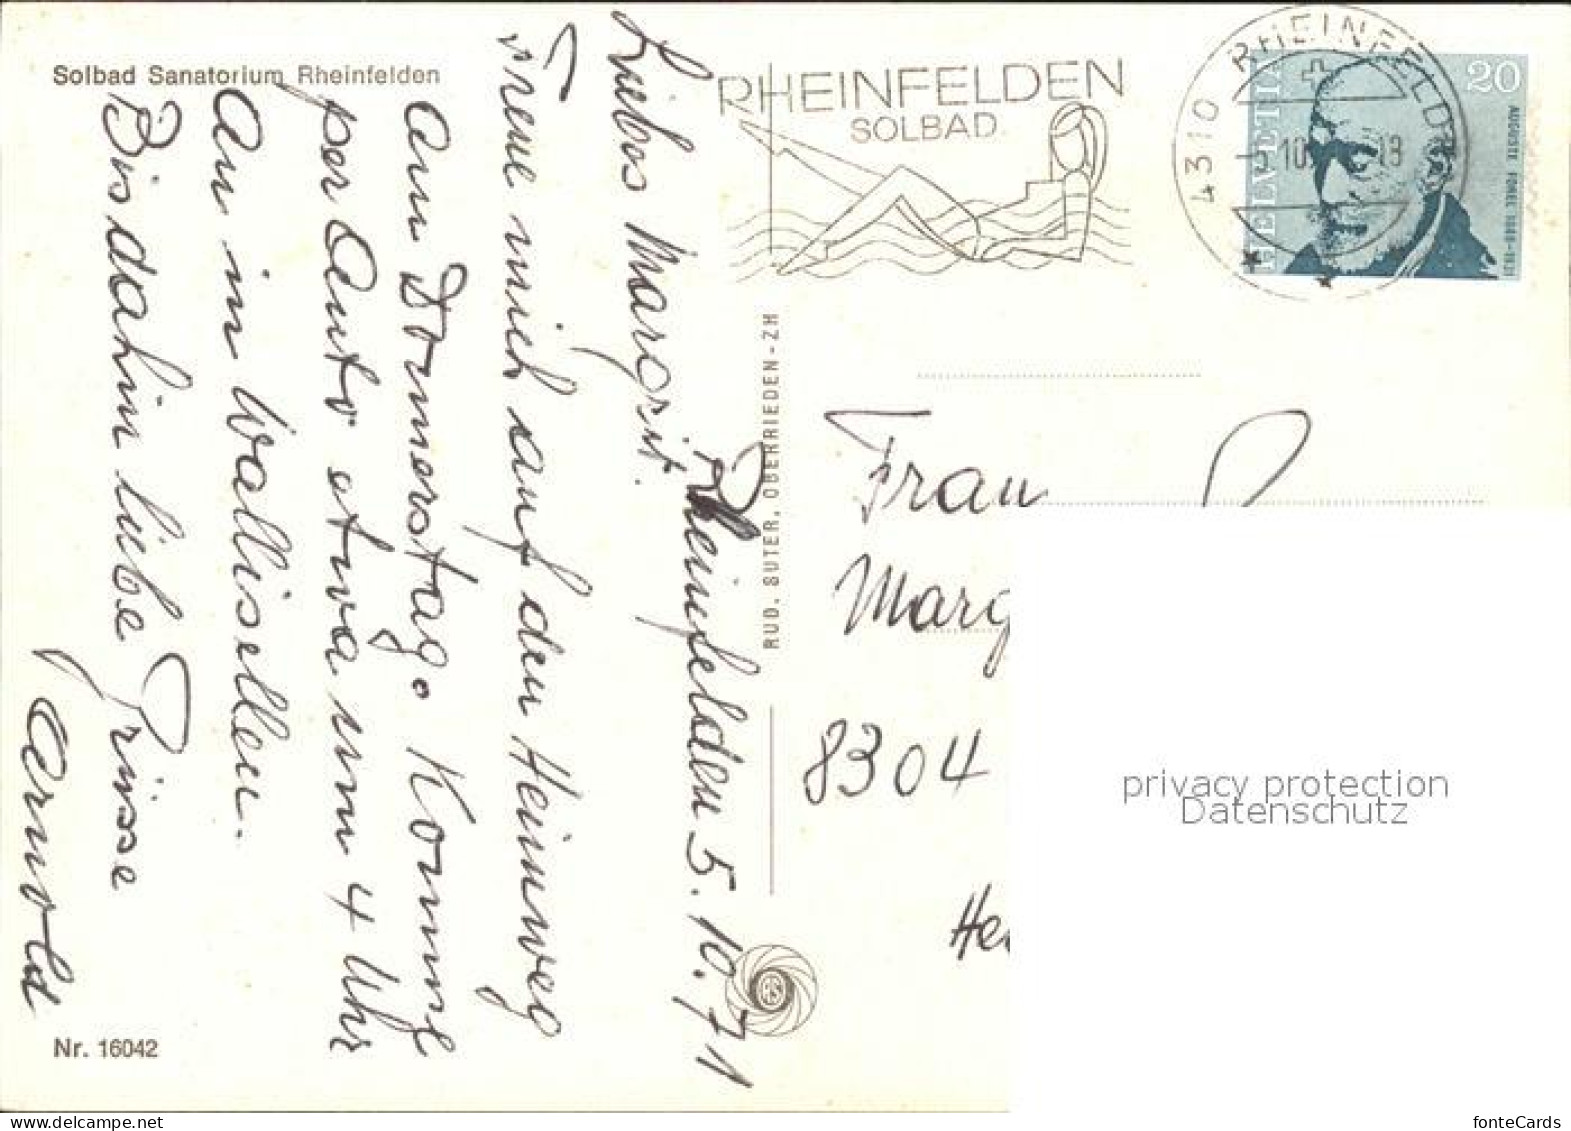 Solbad Sanatorium Rheinfelden
Rheinfelden 5.10.71
Liebes Margrit.
Freue mich auf den Heimweg
am Donnerstag. Komme
per Auto etwa um 4 Uhr
an in Wallisellen.
Bis dahin liebe Grüsse
Arnold
Nr. 16042
RUD. SUTER, OBERRIEDEN-ZH
RS
RHEINFELDEN
SOLBAD
4310 RHEINFELDEN
-5.10.
HELVETIA
20
AUGUSTE FOREL 1848-1931
Frau
Marg
8304
He
privacy protection
Datenschutz
fonteCards